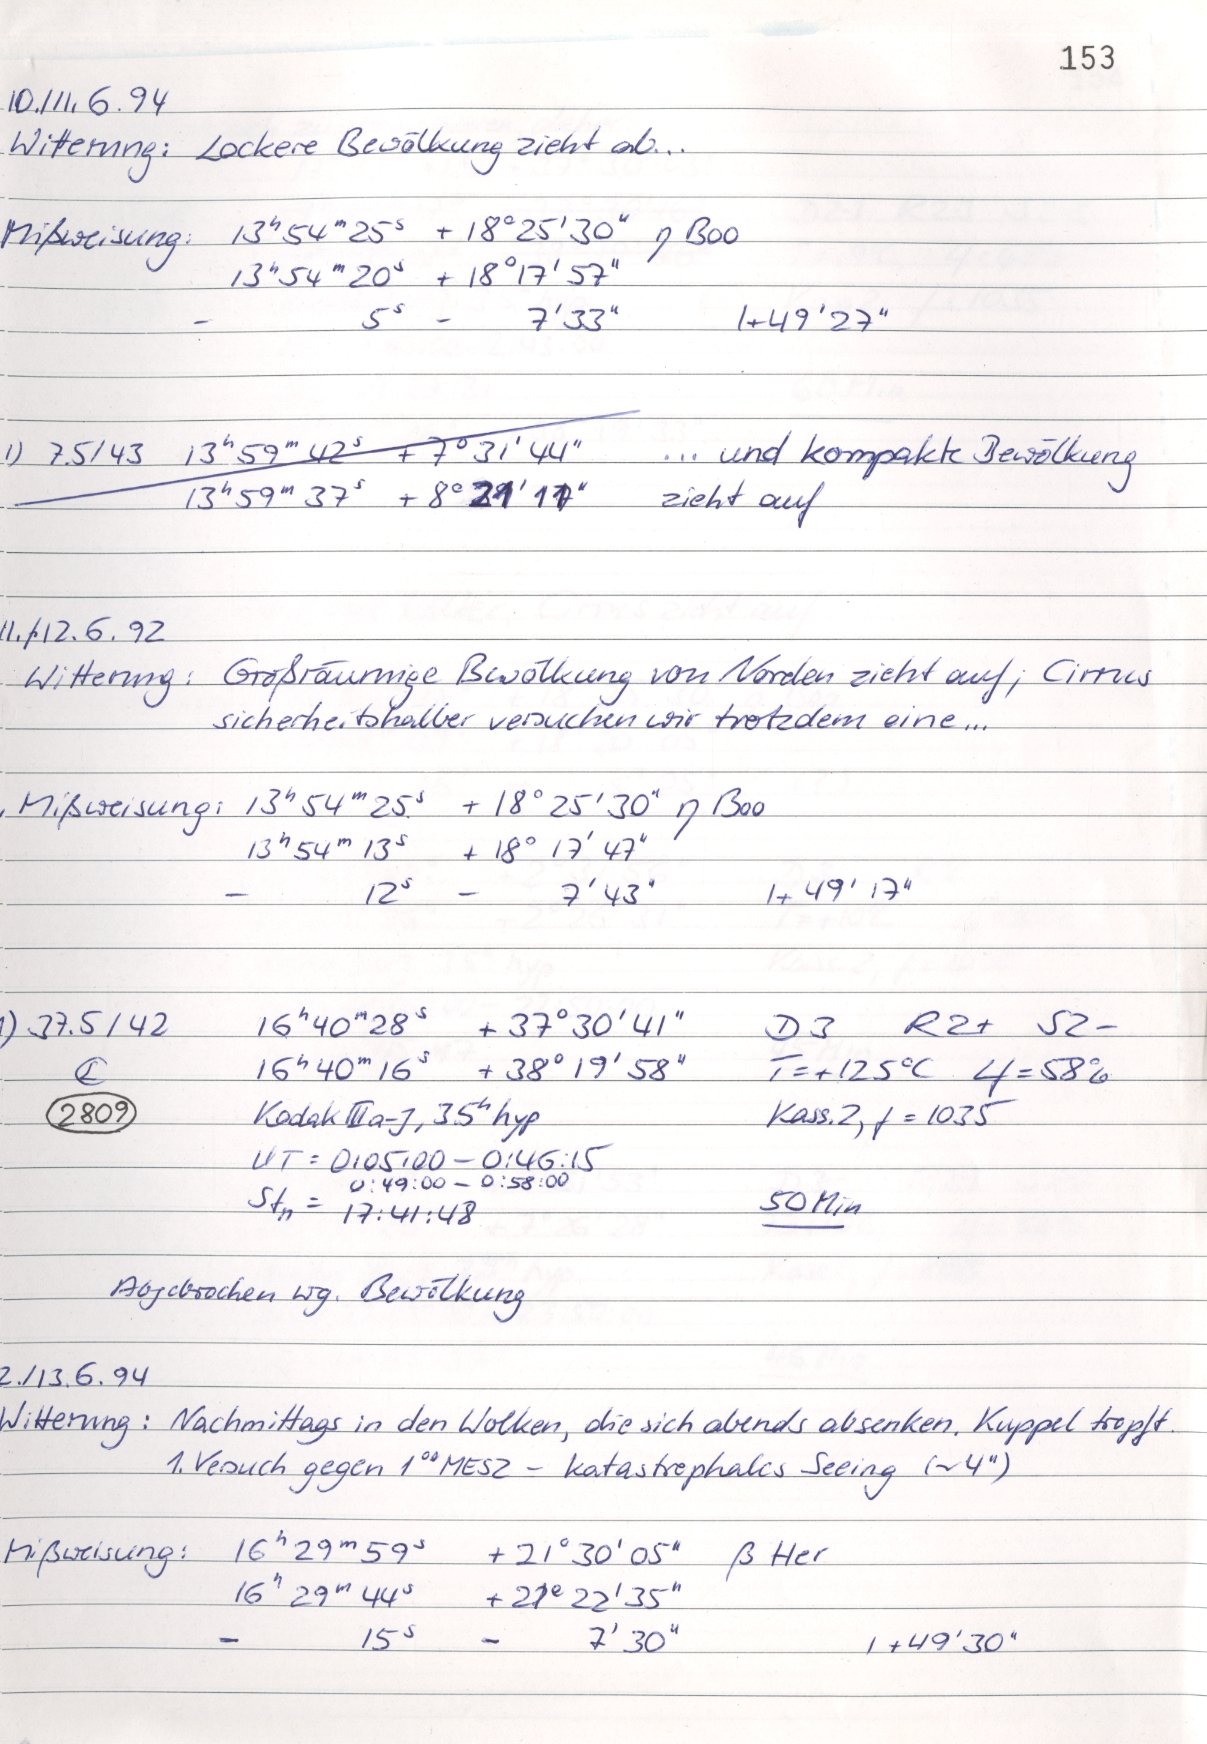 153
10./11.6.94
Witterung: Lockere Bewölkung zieht ab...
Mißweisung: 13ʰ54ᵐ25ˢ +18°25'30" η Boo
13ʰ54ᵐ20ˢ +18°17'57"
- 5ˢ - 7'33" 1+49'27"
1) 7.5/43 13ʰ59ᵐ42ˢ +7°31'44" ... und kompakte Bewölkung
13ʰ59ᵐ37ˢ +8°21'11" zieht auf
11./12.6.92
Witterung: Großräumige Bewölkung von Norden zieht auf; Cirrus
sicherheitshalber versuchen wir trotzdem eine...
Mißweisung: 13ʰ54ᵐ25ˢ +18°25'30" η Boo
13ʰ54ᵐ13ˢ +18°17'47"
- 12ˢ - 7'43" 1+49'17"
1) 37.5/42 16ʰ40ᵐ28ˢ +37°30'41" D3 R2+ S2-
16ʰ40ᵐ16ˢ +38°19'58" T=+125°C φ=58%
2809 Kodak IIIa-J, 3.5ʰ hyp Kass.2, f=1035
UT = 0:05:00 - 0:46:15
0:49:00 - 0:58:00
Stn = 17:41:48 50 Min
Abgebrochen wg. Bewölkung
2./13.6.94
Witterung: Nachmittags in den Wolken, die sich abends absenken. Kuppel tropft.
1. Versuch gegen 1⁰⁰ MESZ - katastrophales Seeing (~4")
Mißweisung: 16ʰ29ᵐ59ˢ +21°30'05" β Her
16ʰ29ᵐ44ˢ +21°22'35"
- 15ˢ - 7'30" 1+49'30"